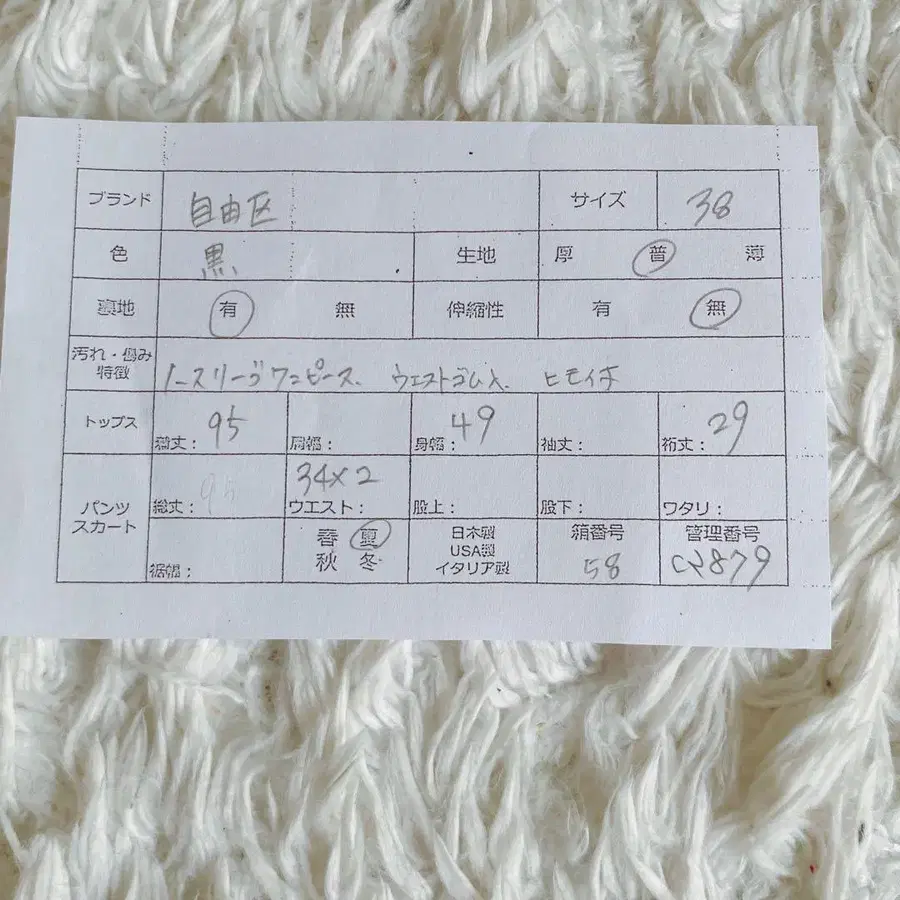 ブランド 自由区 サイズ 38
色 黒 生地 厚 普 薄
裏地 有 無 伸縮性 有 無
汚れ・傷み
特徴 ノースリーブワンピース、ウエストゴム入、ヒモイキ
トップス 着丈: 95 肩幅: 身幅: 49 袖丈: 裄丈: 29
パンツ
スカート 総丈: 95 ウエスト: 34×2 股上: 股下: ワタリ:
裾幅: 春 夏 秋 冬 日本製 USA製 イタリア製 箱番号 58 管理番号